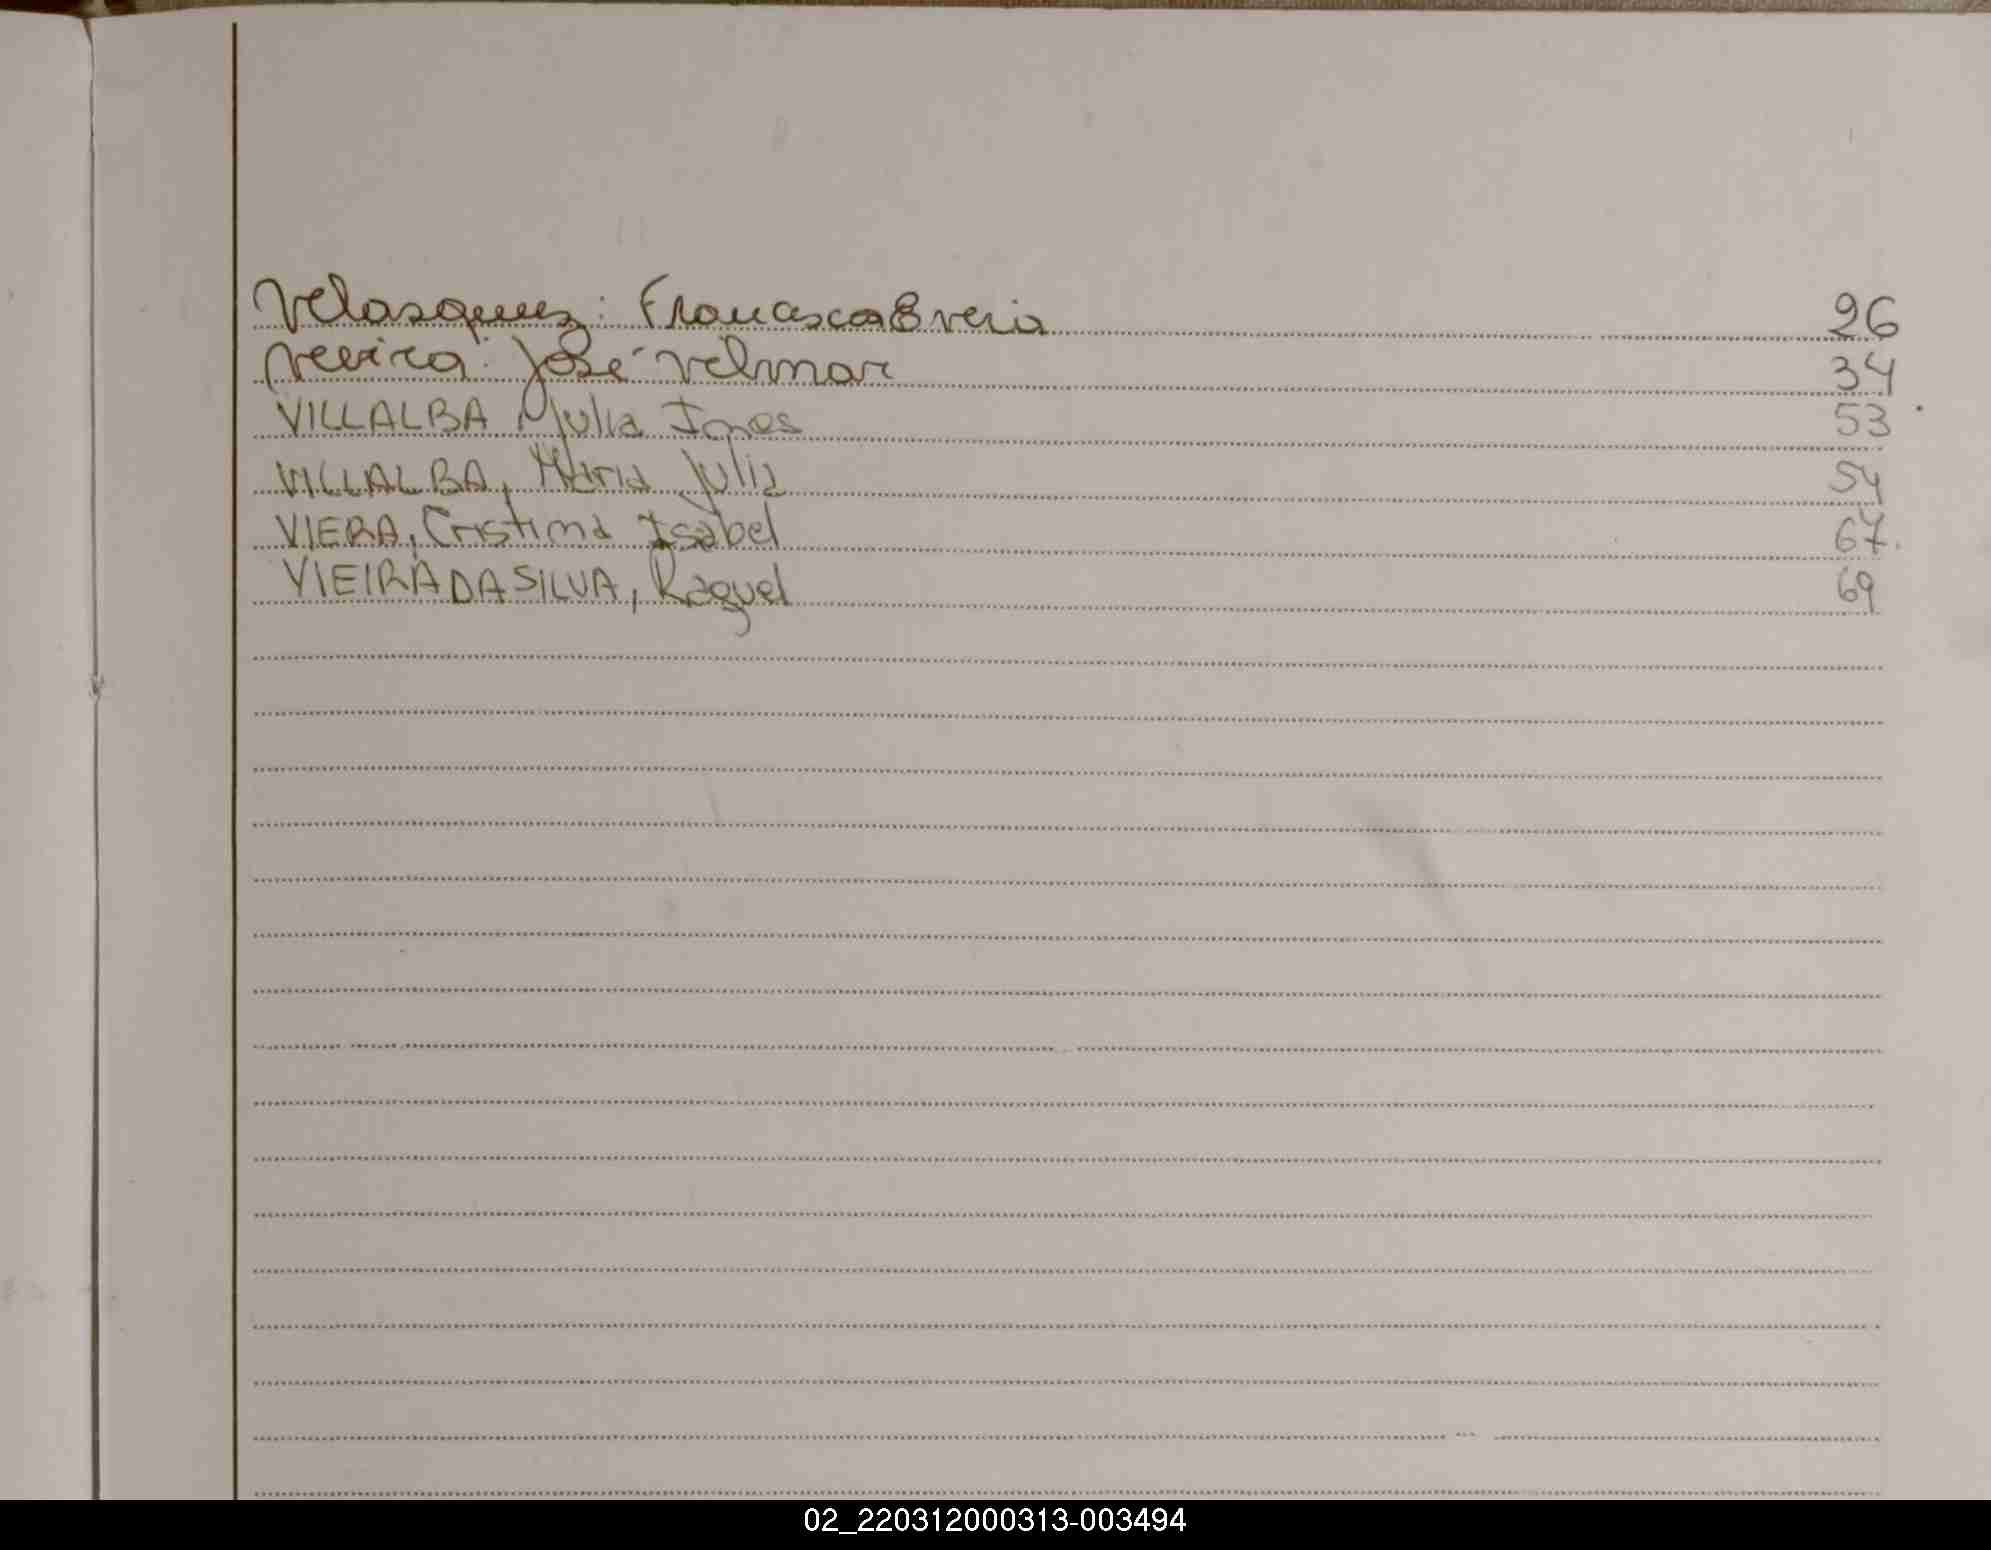 Velasquez: Francisca Breia 26
Vieira: José Velmar 34
VILLALBA, Julia Ines 53
VILLALBA, Maria Julia 54
VIERA, Cristina Isabel 67.
VIEIRA DA SILVA, Raquel 69
02_220312000313-003494